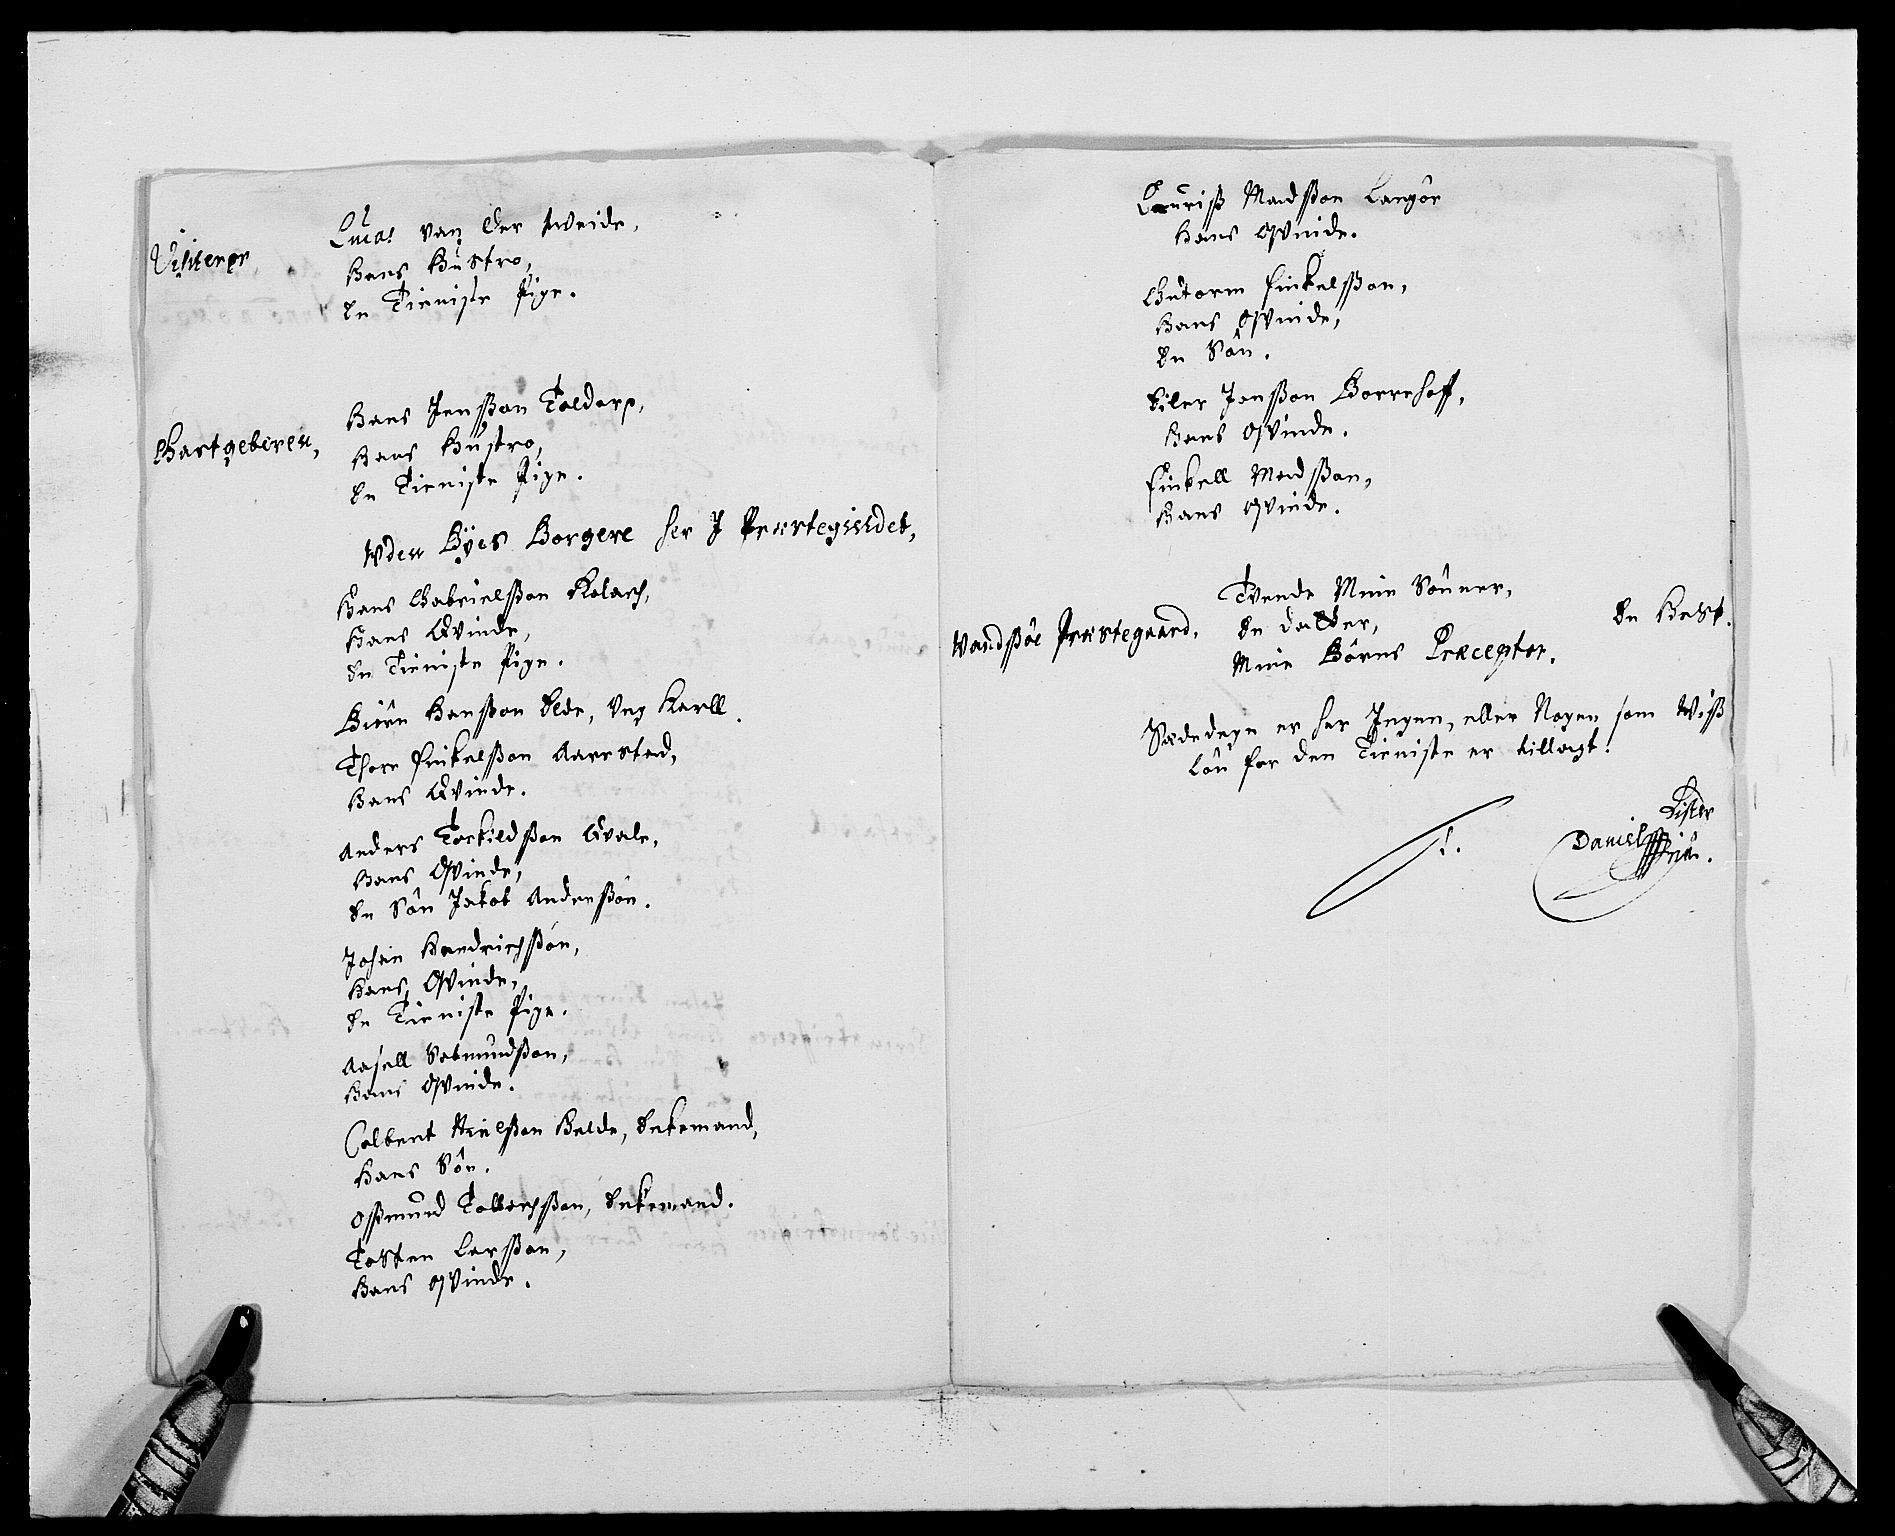 Visiterer
Lucas van der Weide,
Hans Hustro,
En Tieniste Pige.
Chartgeberen,
Hans Jenßøn Toldorp,
Hans Hustro,
En Tieniste Pige.
Uden Byes Borgere her J Præstegieldet,
Hans Gabrielßøn Kolach,
Hans Qvinde,
En Tieniste Pige.
Biørn Hanßøn Elde, Ung Karll.
Thore Enkelßøn Aarestad,
Hans Qvinde.
Anders Torkildßøn Qvale,
Hans Qvinde,
En Søn Jakob Anderßøn.
Johan Hendrichßøn,
Hans Qvinde,
En Tieniste Pige.
Aasell Sebmundßøn,
Hans Qvinde.
Colbent Nielßøn Helde, Enkemand,
Hans Søn.
Oßmund Tollachßøn, Enkemand.
Tosten Larßøn,
Hans Qvinde.
Lauriß Madßøn Langør
Hans Qvinde.
Gutorm Enkelßøn,
Hans Qvinde,
En Søn.
Eiler Jonßøn Borrehoff,
Hans Qvinde.
Enkell Madßøn,
Hans Qvinde.
Wandßøe Præstegaard,
Tvende Mine Sønner,
En datter,
En Hest.
Mine Børns Præceptor.
Sædedegn er her Jngen, eller Nogen som Wiß
Løn for den Tieniste er tillagt.
Daniel